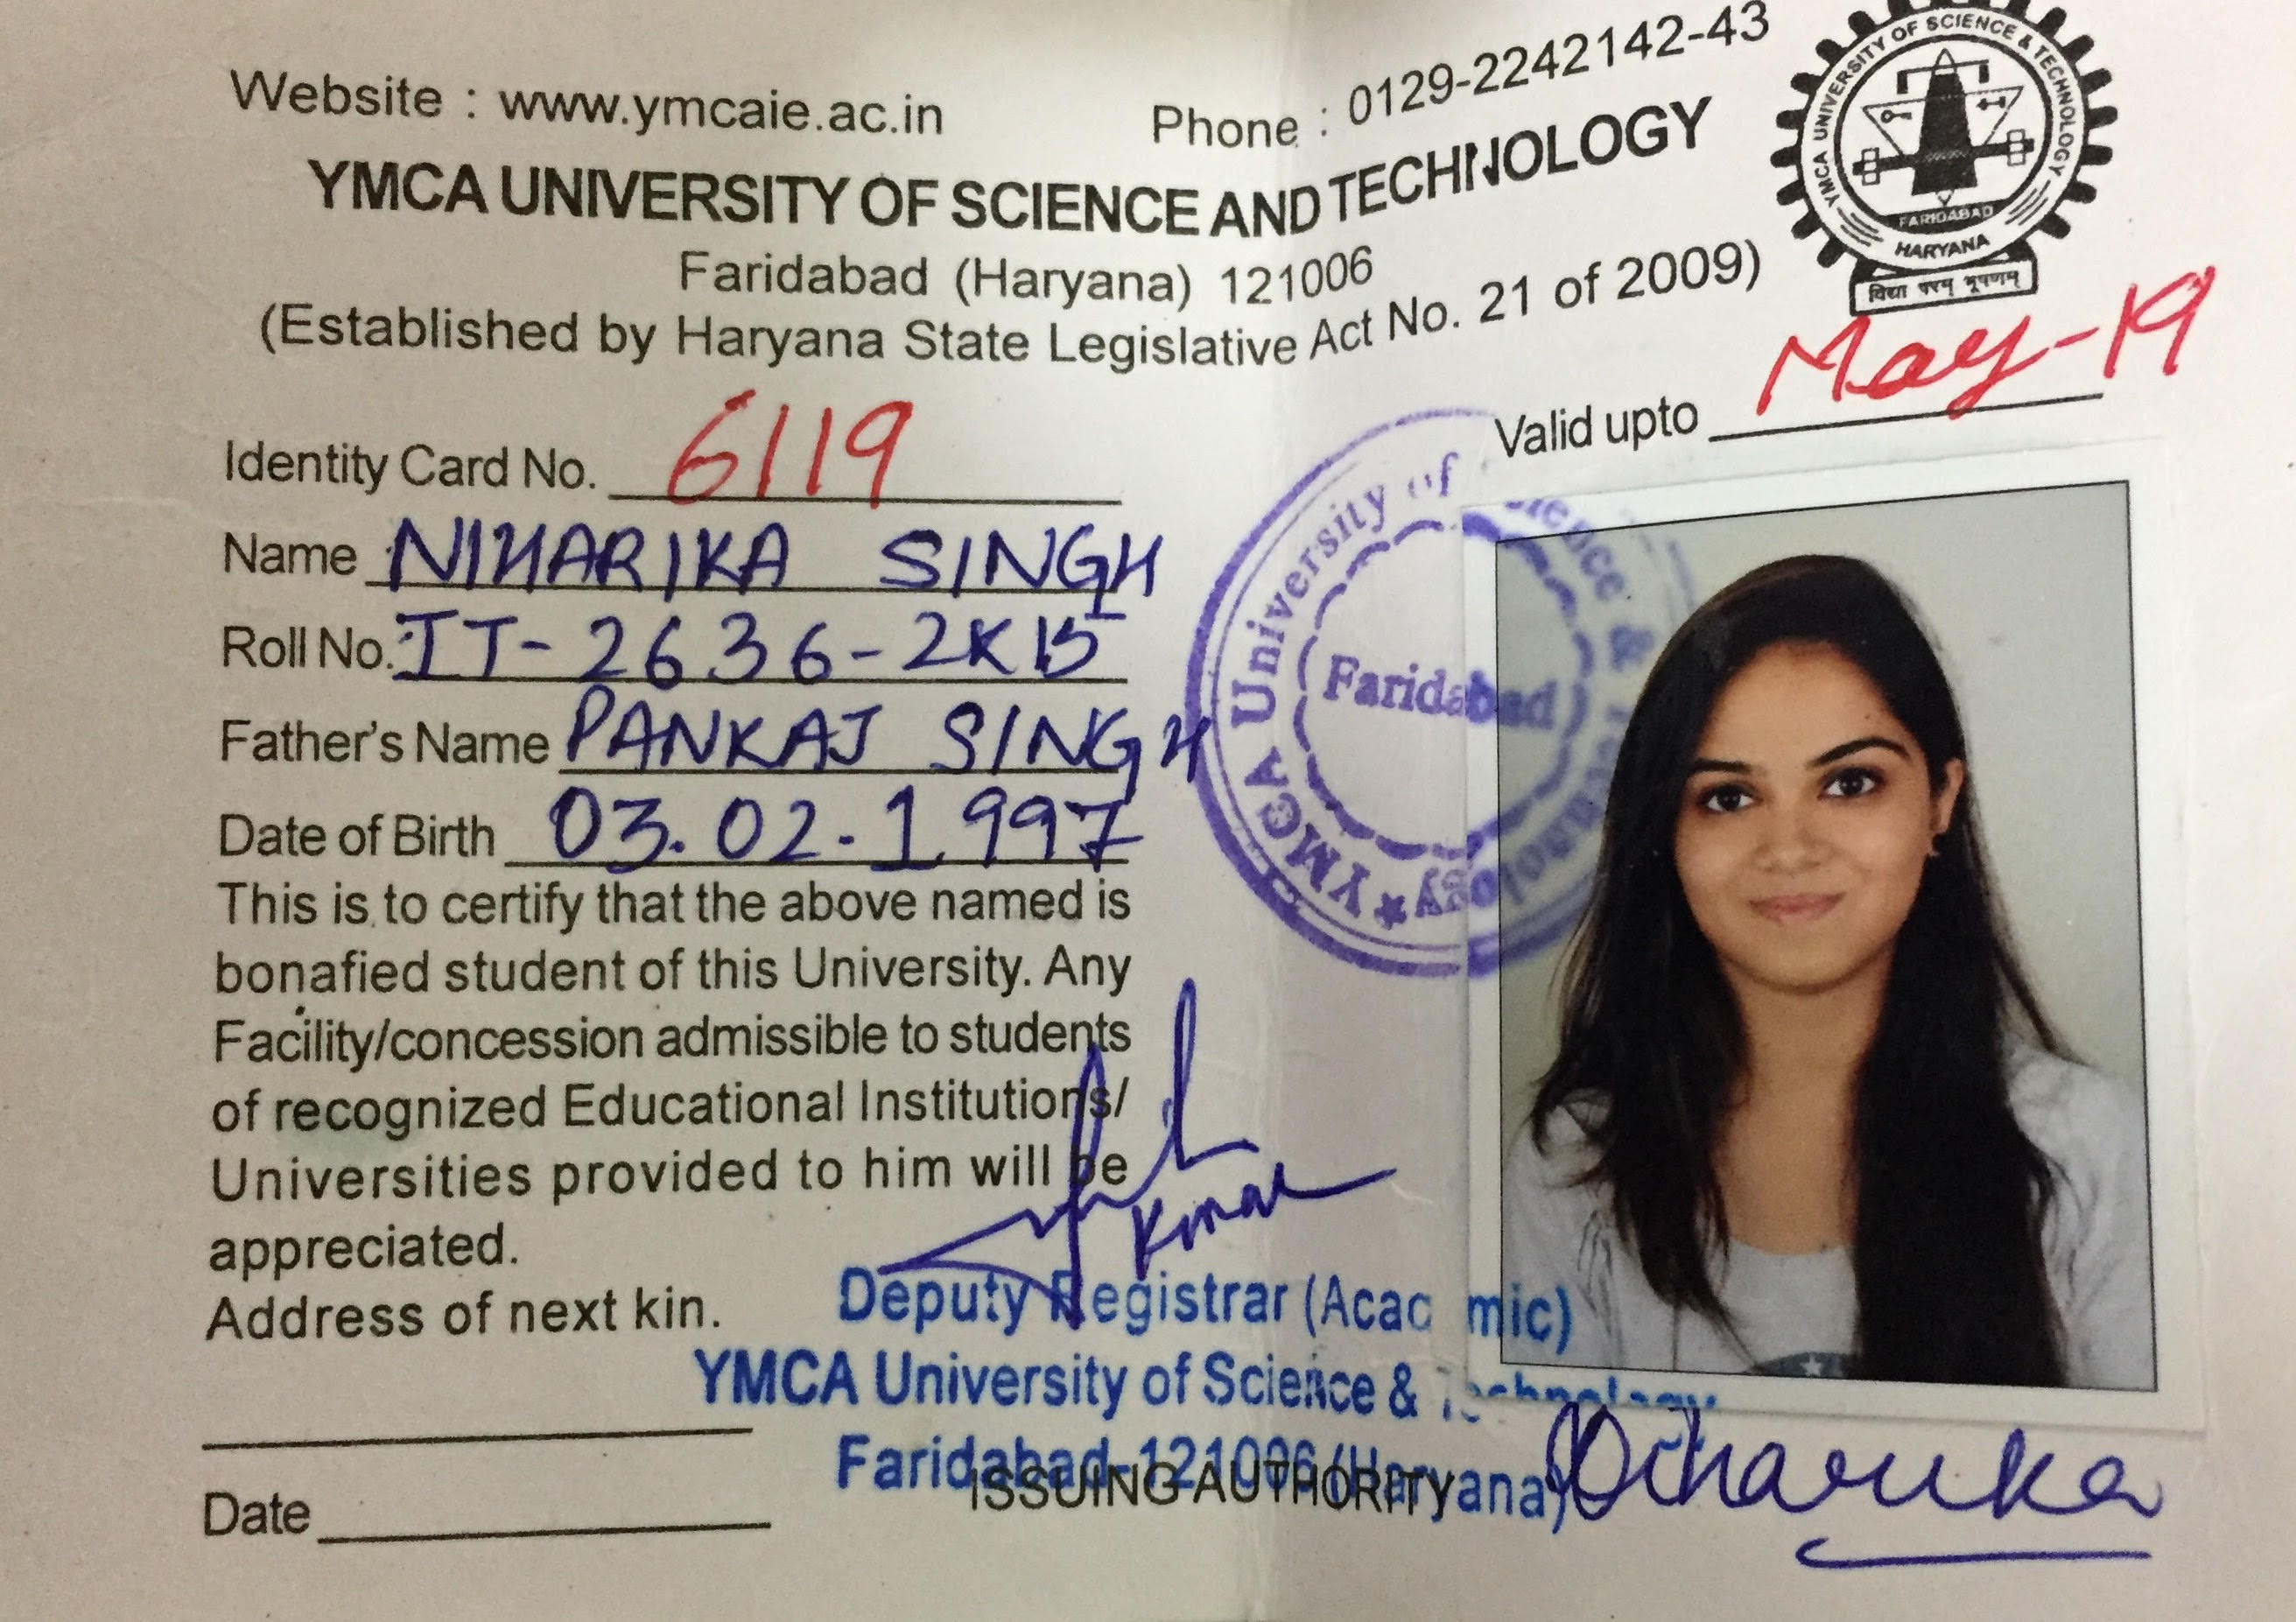 Website : www.ymcaie.ac.in
Phone : 0129-2242142-43
YMCA UNIVERSITY OF SCIENCE AND TECHNOLOGY
Faridabad (Haryana) 121006
(Established by Haryana State Legislative Act No. 21 of 2009)
YMCA UNIVERSITY OF SCIENCE & TECHNOLOGY
FARIDABAD
HARYANA
विद्या परम् भूषणम्
Valid upto May-19
Identity Card No. 6119
Name NIHARIKA SINGH
Roll No. IT-2636-2K15
Father's Name PANKAJ SINGH
Date of Birth 03.02.1997
YMCA University of Science & Technology
Faridabad
This is to certify that the above named is
bonafied student of this University. Any
Facility/concession admissible to students
of recognized Educational Institutions/
Universities provided to him will be
appreciated.
Address of next kin.
Kumar
Deputy Registrar (Academic)
YMCA University of Science & Technology
Faridabad-121006 (Haryana)
ISSUING AUTHORITY
Niharika
Date